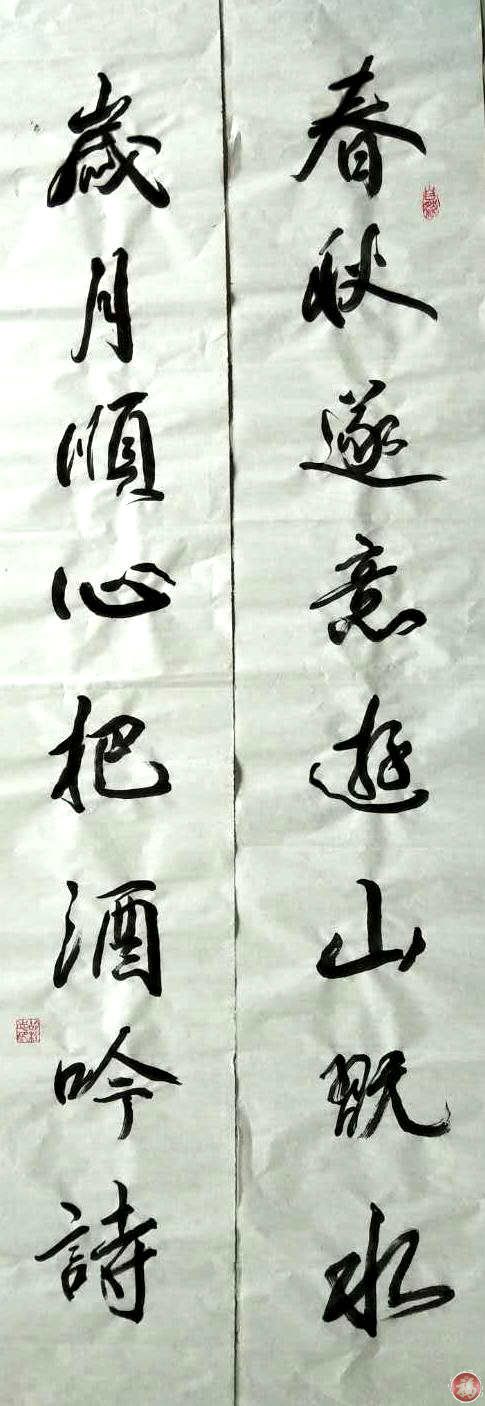 春秋遂意遊山翫水
歲月順心把酒吟詩
福